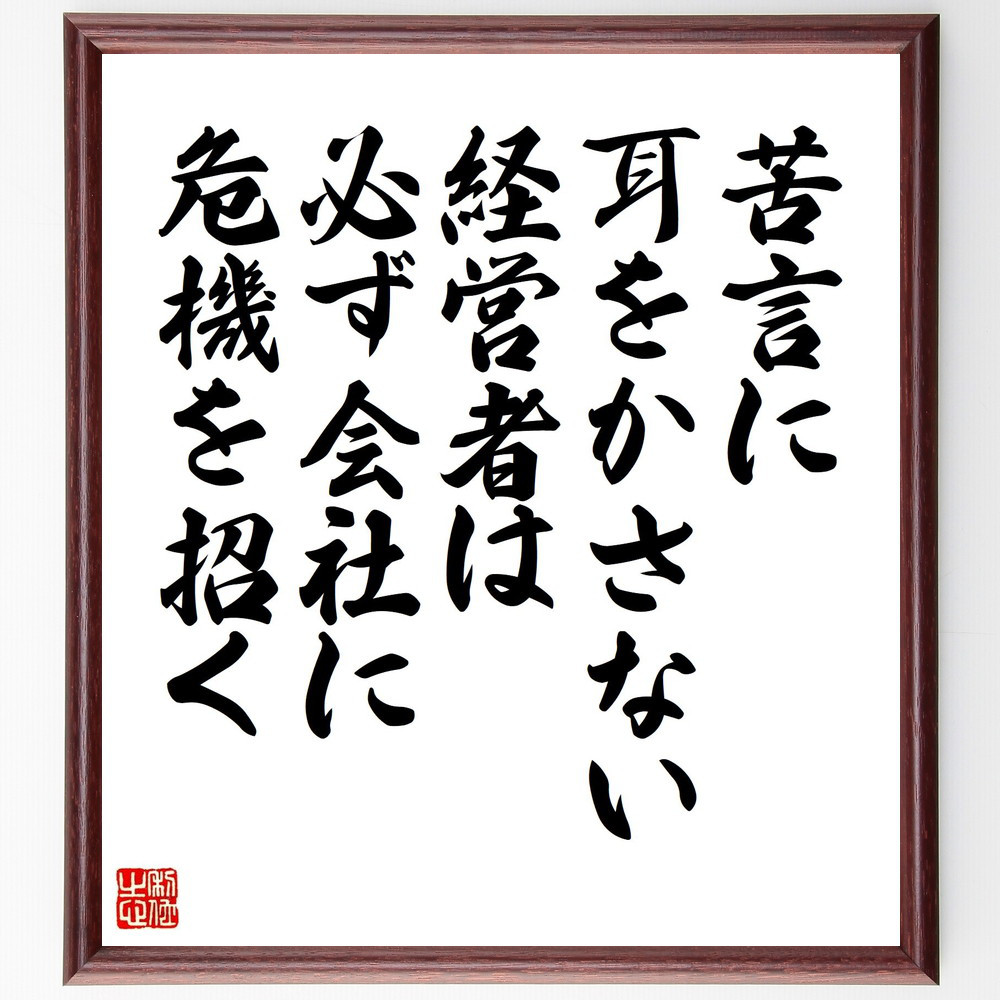 苦言に
耳をかさない
経営者は
必ず会社に
危機を招く